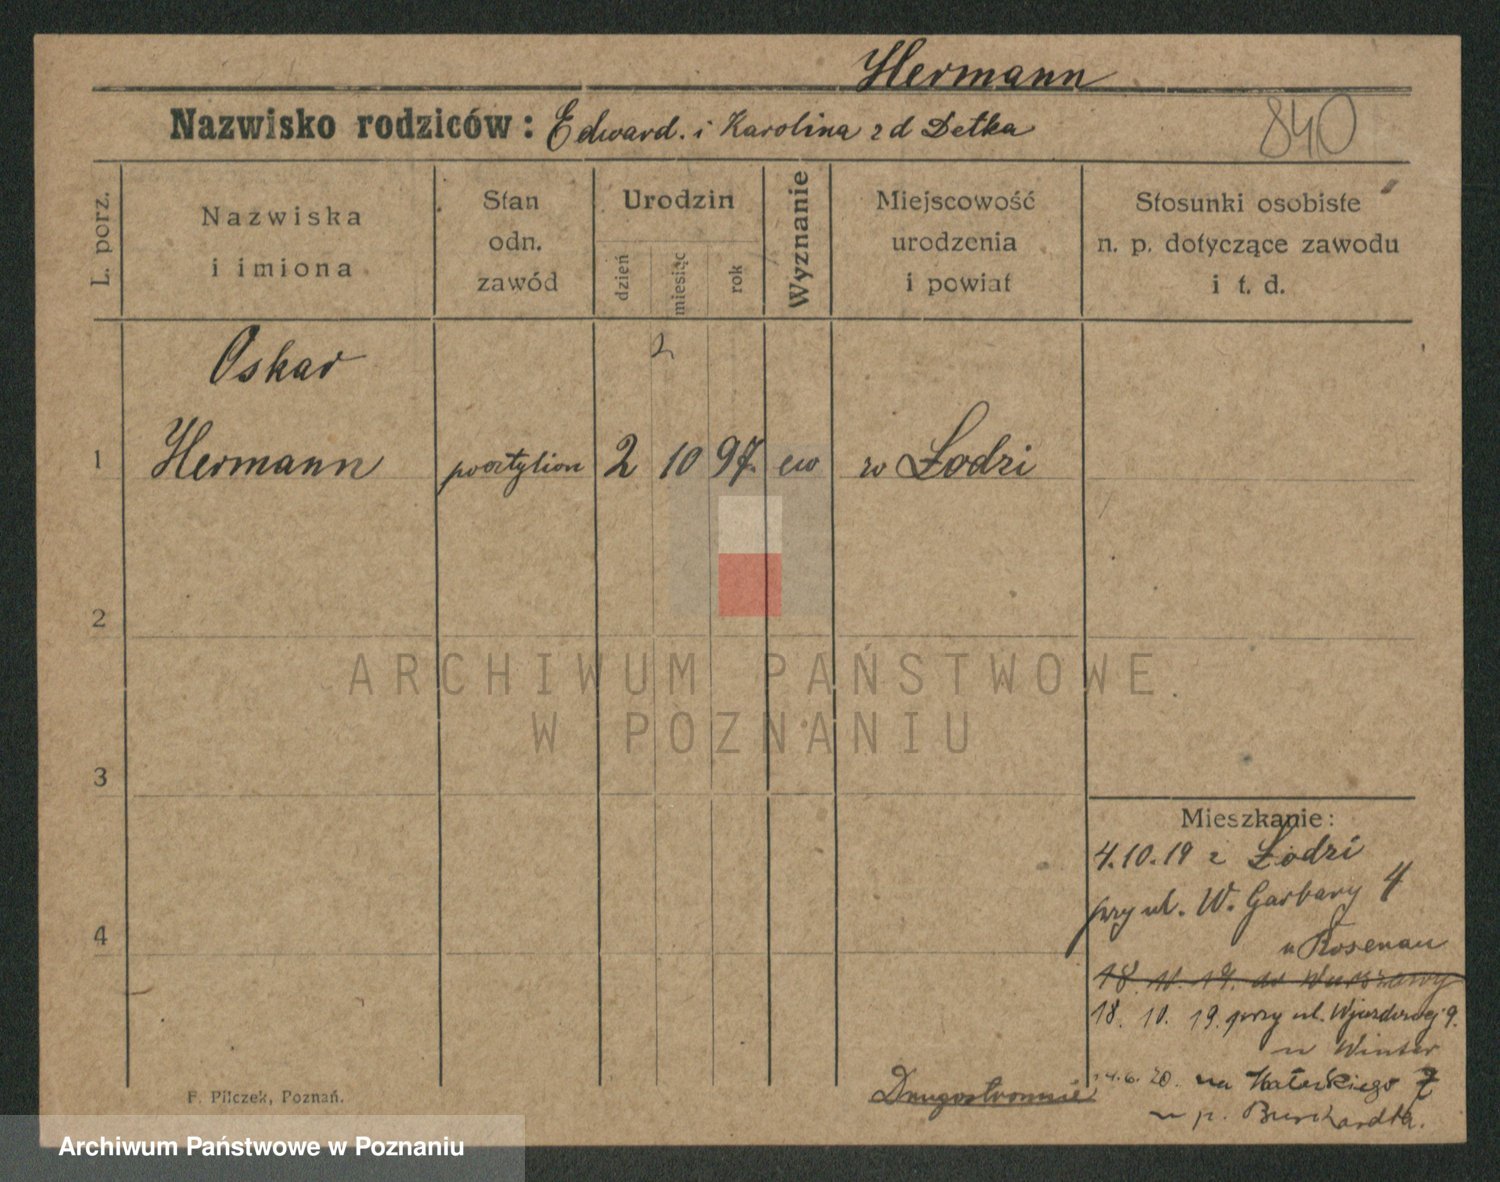 Hermann
Nazwisko rodziców: Edward. i Karolina z d Detka
840
L. porz.
Nazwiska
i imiona
Stan
odn.
zawód
Urodzin
dzień
miesiąc
rok
Wyznanie
Miejscowość
urodzenia
i powiat
Stosunki osobiste
n. p. dotyczące zawodu
i t. d.
2
Oskar
1 Hermann pocztylion 2 10 97. ew w Łodzi
2
ARCHIWUM PAŃSTWOWE
W POZNANIU
3
4
Mieszkanie:
4.10.19 z Łodzi
przy ul. W. Garbary 4
u Rosenau
18. 10. 19. do Warszawy
18. 10. 19. przy ul. Wjazdowej 9.
u Winter
4.6.20. na 7
u p. Burchardta.
Drugostronnie
F. Pilczek, Poznań.
Archiwum Państwowe w Poznaniu